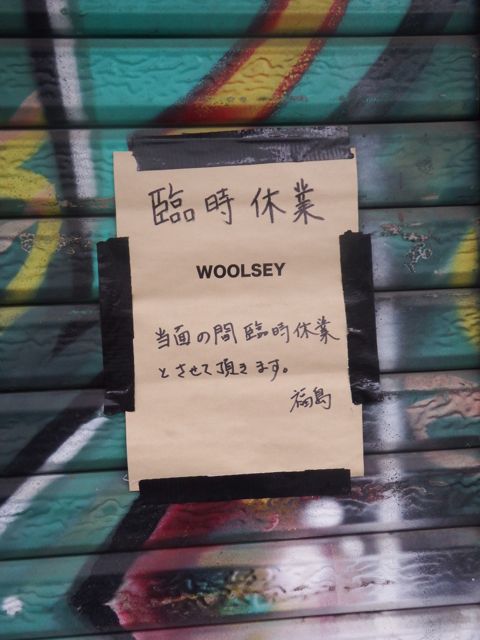 臨時休業
WOOLSEY
当面の間臨時休業
とさせて頂きます。
福島